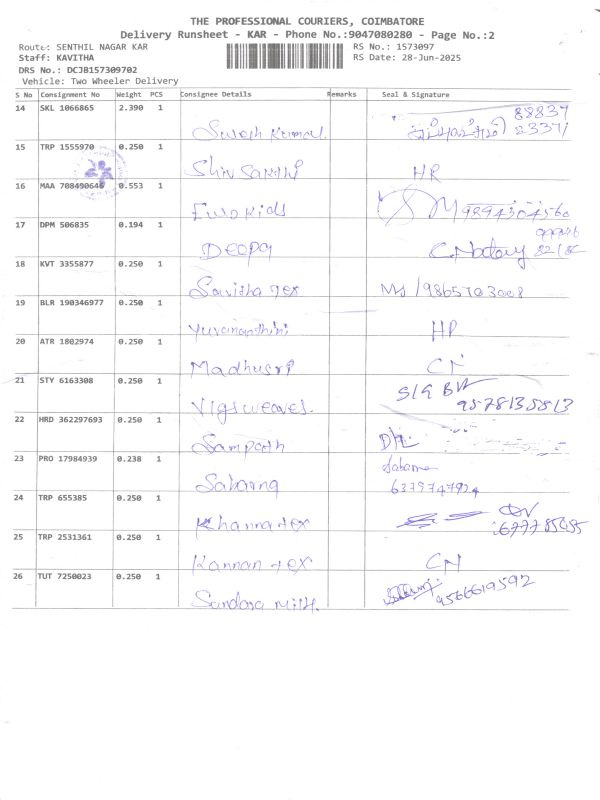 THE PROFESSIONAL COURIERS, COIMBATORE
Delivery Runsheet - KAR - Phone No.:9047080280 - Page No.:2
Route: SENTHIL NAGAR KAR RS No.: 1573097
Staff: KAVITHA RS Date: 28-Jun-2025
DRS No.: DCJB157309702
Vehicle: Two Wheeler Delivery
S No Consignment No Weight PCS Consignee Details Remarks Seal & Signature
14 SKL 1066865 2.390 1
15 TRP 1555970 0.250 1
Shiv Sakthi HR
16 MAA 708490646 0.553 1
Euro Kids
17 DPM 506835 0.194 1
Deepa
18 KVT 3355877 0.250 1
Savitha Tex MS / 9865703008
19 BLR 190346977 0.250 1
20 ATR 1802974 0.250 1
Madhusri CN
21 STY 6163308 0.250 1
9578135813
22 HRD 362297693 0.250 1
Sampath
23 PRO 17984939 0.238 1
6379747924
24 TRP 655385 0.250 1
Khanna tex
25 TRP 2531361 0.250 1
Kannan tex CN
26 TUT 7250023 0.250 1
9566619592